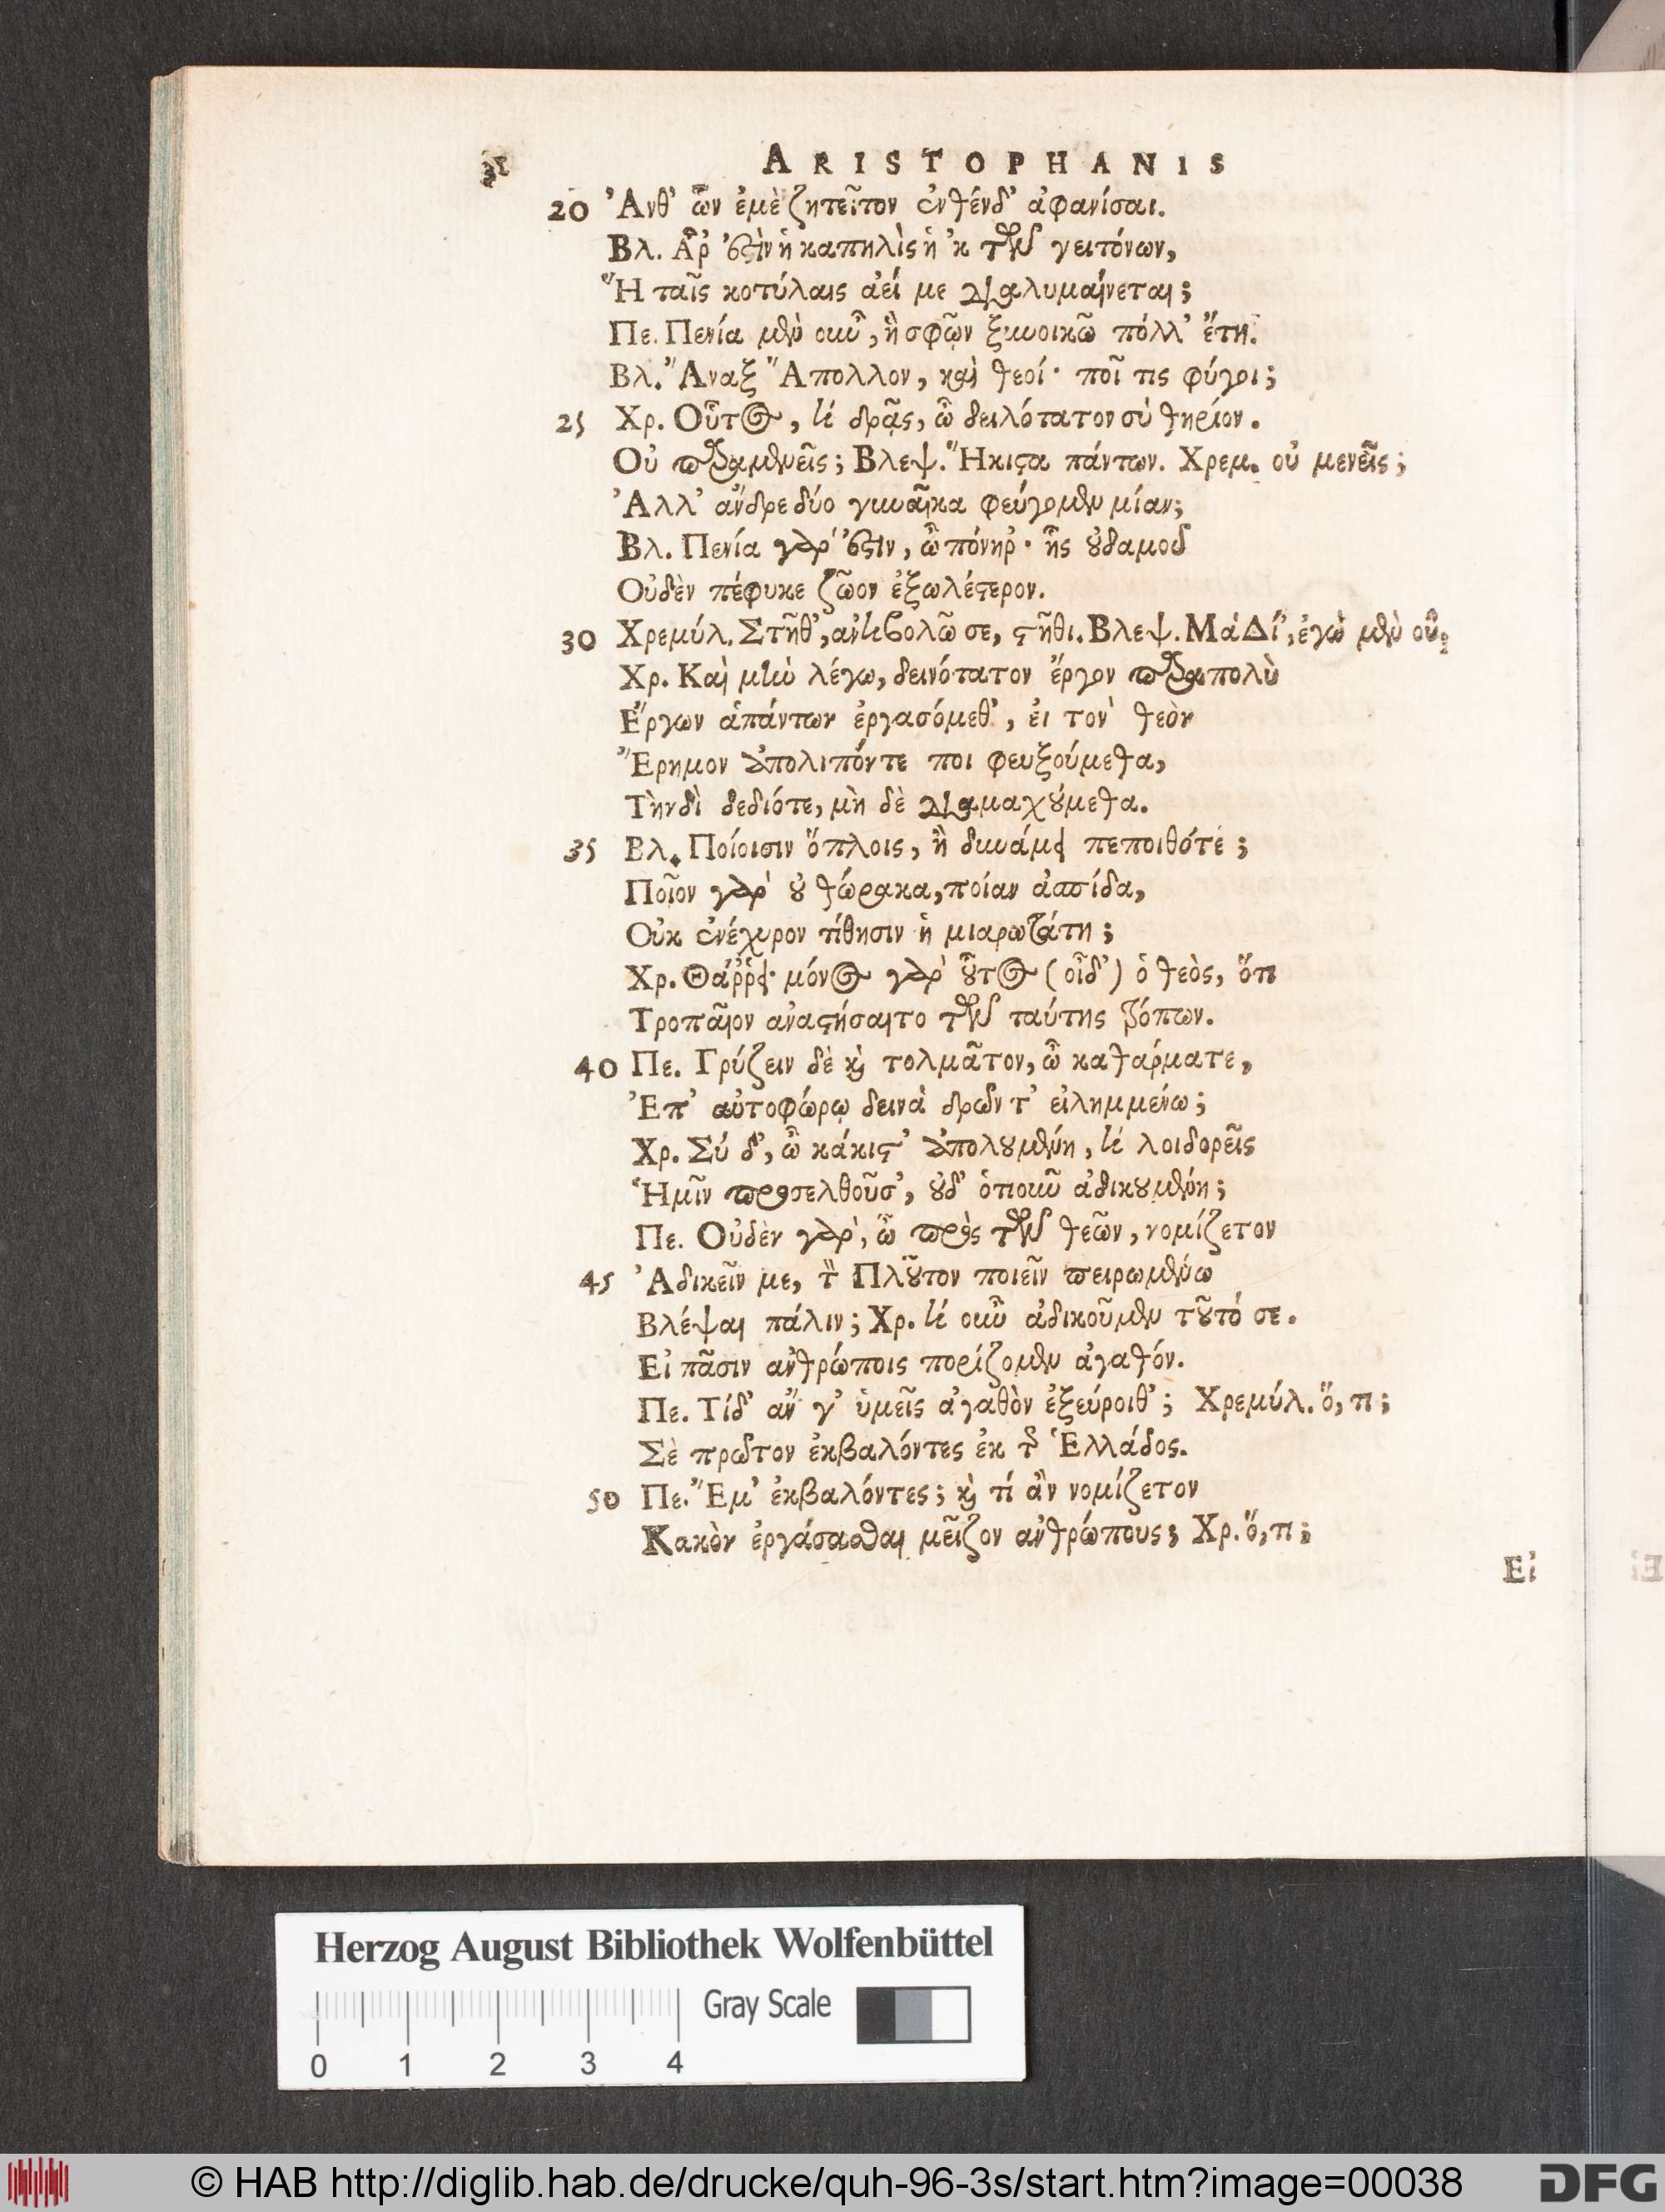 ARISTOPHANIS
20 Ἀνθ' ὧν ἐμὲ ζητεῖτον ἐνθένδ' ἀφανίσαι.
Βλ. Ἆρ' ἐστὶν ἡ καπηλὶς ἡ 'κ τῶν γειτόνων,
Ἣ ταῖς κοτύλαις ἀεί με διαλυμαίνεται;
Πε. Πενία μὲν οὖν, ἣ σφῷν ξυνοικῶ πόλλ' ἔτη.
Βλ. Ἄναξ Ἄπολλον, καὶ θεοί· ποῖ τις φύγοι;
25 Χρ. Οὗτος, τί δρᾷς, ὦ δειλότατον σὺ θηρίον.
Οὐ παραμενεῖς; Βλεψ. Ἥκιστα πάντων. Χρεμ. οὐ μενεῖς;
Ἀλλ' ἄνδρε δύο γυναῖκα φεύγομεν μίαν;
Βλ. Πενία γάρ 'στιν, ὦ πόνηρ'· ἧς οὐδαμοῦ
Οὐδὲν πέφυκε ζῶον ἐξωλέστερον.
30 Χρεμύλ. Στῆθ', ἀντιβολῶ σε, στῆθι. Βλεψ. Μὰ Δί', ἐγὼ μὲν οὔ.
Χρ. Καὶ μὴν λέγω, δεινότατον ἔργον παραπολὺ
Ἔργων ἁπάντων ἐργασόμεθ', εἰ τὸν θεὸν
Ἔρημον ἀπολιπόντε ποι φευξούμεθα,
Τηνδὶ δεδιότε, μὴ δὲ διαμαχούμεθα.
35 Βλ. Ποίοισιν ὅπλοις, ἢ δυνάμει πεποιθότε;
Ποῖον γὰρ οὐ θώρακα, ποίαν ἀσπίδα,
Οὐκ ἐνέχυρον τίθησιν ἡ μιαρωτάτη;
Χρ. Θάῤῥει· μόνος γὰρ οὗτος (οἶδ') ὁ θεὸς, ὅτι
Τροπαῖον ἀναστήσαιτο τῶν ταύτης τρόπων.
40 Πε. Γρύζειν δὲ καὶ τολμᾶτον, ὦ καθάρματε,
Ἐπ' αὐτοφώρῳ δεινὰ δρῶντ' εἰλημμένω;
Χρ. Σύ δ', ὦ κάκιστ' ἀπολουμένη, τί λοιδορεῖς
Ἡμῖν προσελθοῦσ', οὐδ' ὁτιοῦν ἀδικουμένη;
Πε. Οὐδὲν γὰρ, ὦ πρὸς τῶν θεῶν, νομίζετον
45 Ἀδικεῖν με, τὸν Πλοῦτον ποιεῖν πειρωμένω
Βλέψαι πάλιν; Χρ. τί οὖν ἀδικοῦμεν τοῦτό σε.
Εἰ πᾶσιν ἀνθρώποις πορίζομεν ἀγαθόν.
Πε. Τί δ' ἄν γ' ὑμεῖς ἀγαθὸν ἐξεύροιθ'; Χρεμύλ. ὅ,τι;
Σὲ πρῶτον ἐκβαλόντες ἐκ τῆς Ἑλλάδος.
50 Πε. Ἔμ' ἐκβαλόντες; καὶ τί ἂν νομίζετον
Κακὸν ἐργάσασθαι μεῖζον ἀνθρώπους; Χρ. ὅ,τι;
Εἰ
Herzog August Bibliothek Wolfenbüttel
Gray Scale
0 1 2 3 4
© HAB http://diglib.hab.de/drucke/quh-96-3s/start.htm?image=00038
DFG